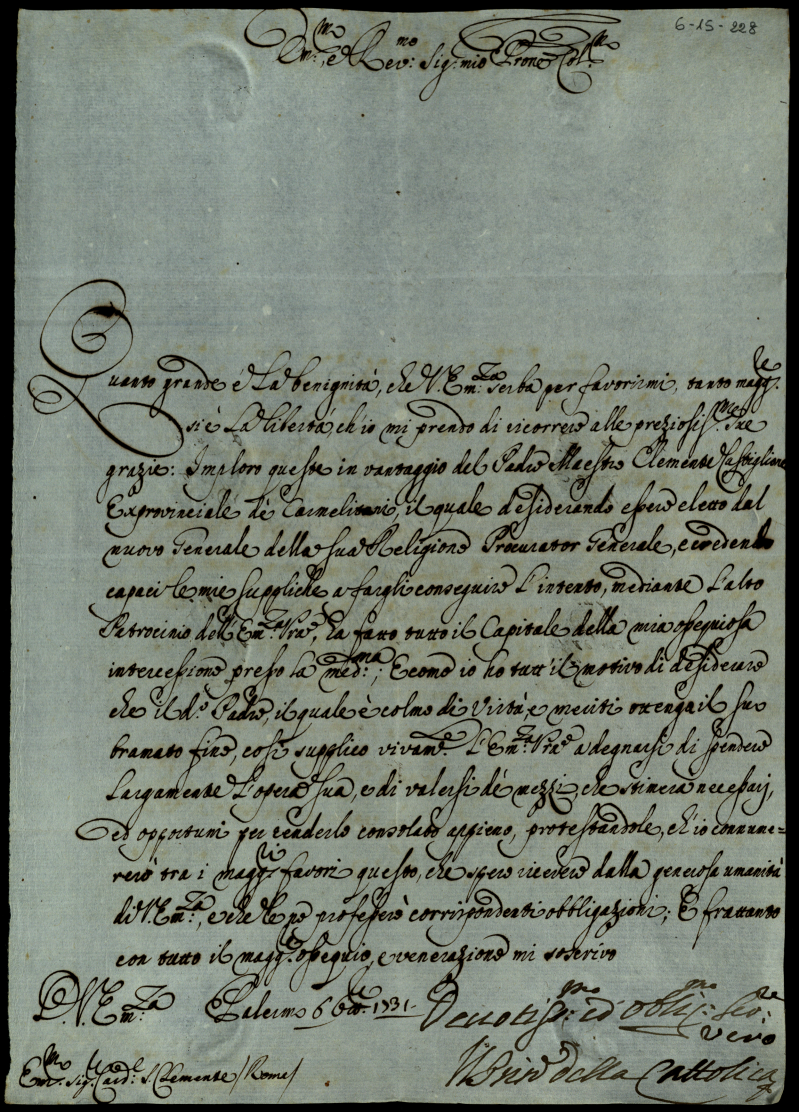 6-15-228
Em.mo, e Rev.mo Sig.r mio Prone Col.mo
Quanto grande è La benignità, che V. Em.za serba per favorirmi, tanto magg.re
si è La libertà, ch'io mi prendo di ricorrere alle preziosiss.me sue
grazie: Imploro queste in vantaggio del Padre Maestro Clemente Castiglione
Exprovinciale de' Carmelitani, il quale desiderando essere eletto dal
nuovo Generale della sua Religione Procurator Generale, e credendo
capaci le mie suppliche a fargli conseguire L'intento, mediante L'alto
Patrocinio dell'Em.za Vra, ha fatto tutto il Capitale della mia ossequiosa
intercessione presso La med.ma; E come io ho tutt'il motivo di desiderare
che il d.o Padre, il quale è colmo di Virtù, e meriti ottenga il suo
bramato fine, così supplico vivam.e L'Em.za Vra a degnarsi di spendere
Largamente L'opera sua, e di valersi de' mezzi, che stimera necessarj,
ed opportuni per renderlo consolato appieno, protestandole, ch'io connume=
rerò tra i magg.ri favori questo, che spero ricevere dalla generosa umanità
di V. Em.za, e che le ne professerò corrispondenti obbligazioni; E frattanto
con tutto il magg.r ossequio, e venerazione mi soscrivo
D. V. Em.za Palermo 6 1731.
Devotiss.mo ed obblig.mo ser.re
vero
Em.mo Sig.r Card.l S. Clemente /Roma/
Il Prin.e della Cattolica